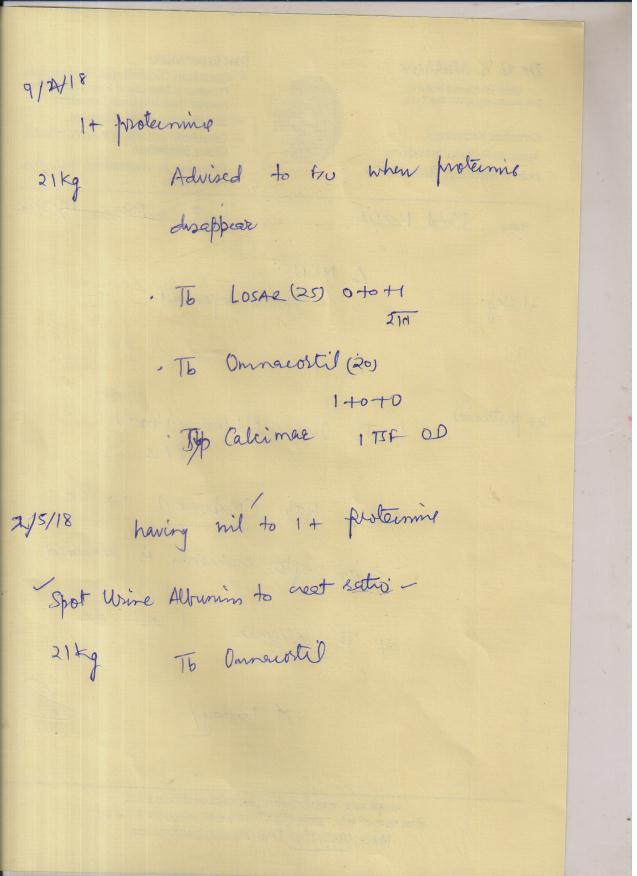 9/4/18
1+ proteinuria
21kg Advised to f/u when proteinuria
disappear
. Tb LOSAR (25) 0+0+1
. Tb Omnacortil (20)
1+0+0
. Syp Calcimax 1 TSF OD
2/5/18 having nil to 1+ proteinuria
✓ Spot Urine Albumin to creat ratio –
21kg Tb Omnacortil